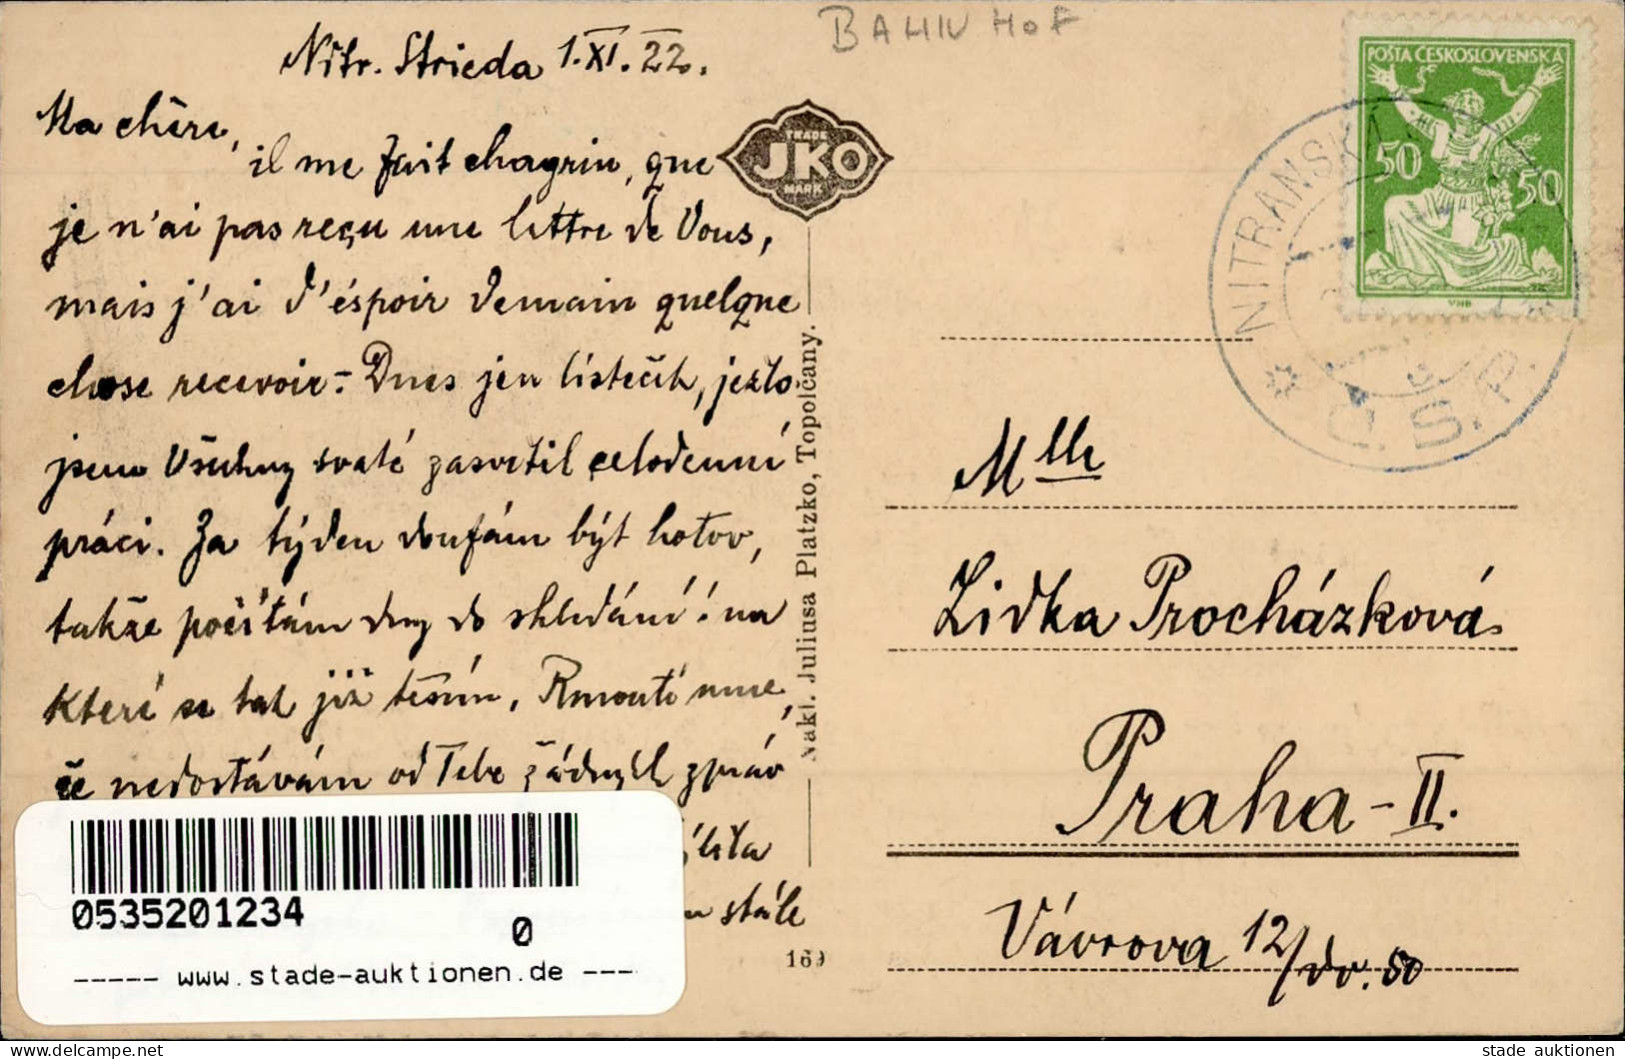 BAHNHOF
Nitr. Strieda 1.XI.22.
Ma chère,
il me fait chagrin, que
je n'ai pas reçu une lettre de Vous,
mais j'ai d'éspoir demain quelque
chose recevoir.- Dnes jen lísteček, ježto
jsem Všechny svaté zasvětil celodenní
práci. Za týden doufám být hotov,
takže počítám dny do shledání! na
které se tak již těším. Rmoutí mne,
že nedostávám od Tebe žádných zpráv
stále
TRADE
JKO
MARK
Nakl. Juliusa Platzko, Topolčany.
169
POŠTA ČESKOSLOVENSKÁ
50
50
VHB
NITRANSKÁ
Č.S.P.
Mlle
Lidka Procházková
Praha-II.
Vávrova 12/dv. 50
0535201234
0
----- www.stade-auktionen.de ---
stade auktionen
www.delcampe.net